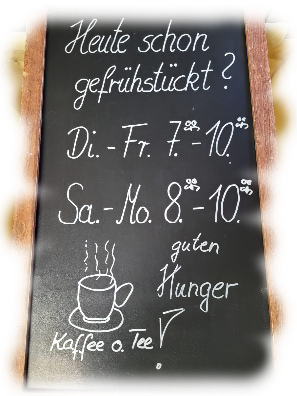 Heute schon
gefrühstückt?
Di.-Fr. 7.-10.
Sa.-Mo. 8.-10.
guten
Hunger
Kaffee o. Tee